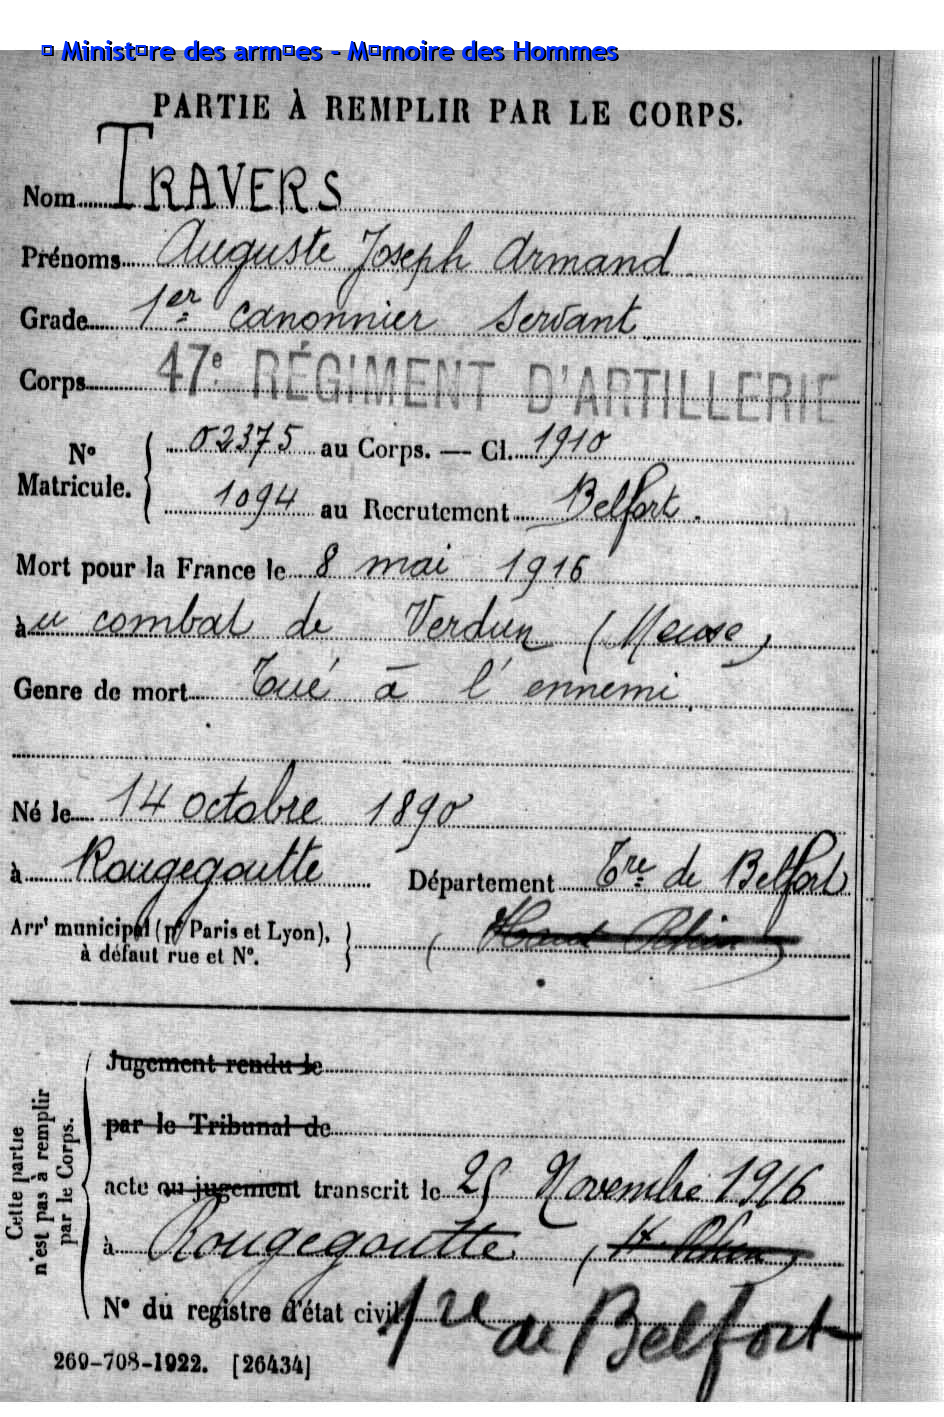 © Ministère des armées - Mémoire des Hommes
PARTIE À REMPLIR PAR LE CORPS.
Nom TRAVERS
Prénoms Auguste Joseph Armand
Grade 1er canonnier servant
Corps 47e RÉGIMENT D'ARTILLERIE
No Matricule. 02375 au Corps. — Cl. 1910
1094 au Recrutement Belfort.
Mort pour la France le 8 mai 1916
au combat de Verdun (Meuse)
Genre de mort Tué à l'ennemi
Né le 14 octobre 1890
à Rougegoutte Département Tre de Belfort
Arrt municipal (pr Paris et Lyon), à défaut rue et No. (Haut Rhin)
Cette partie n'est pas à remplir par le Corps.
Jugement rendu le
par le Tribunal de
acte ou jugement transcrit le 25 Novembre 1916
à Rougegoutte (Ht Rhin)
No du registre d'état civil
Tre de Belfort
269-708-1922. [26434]